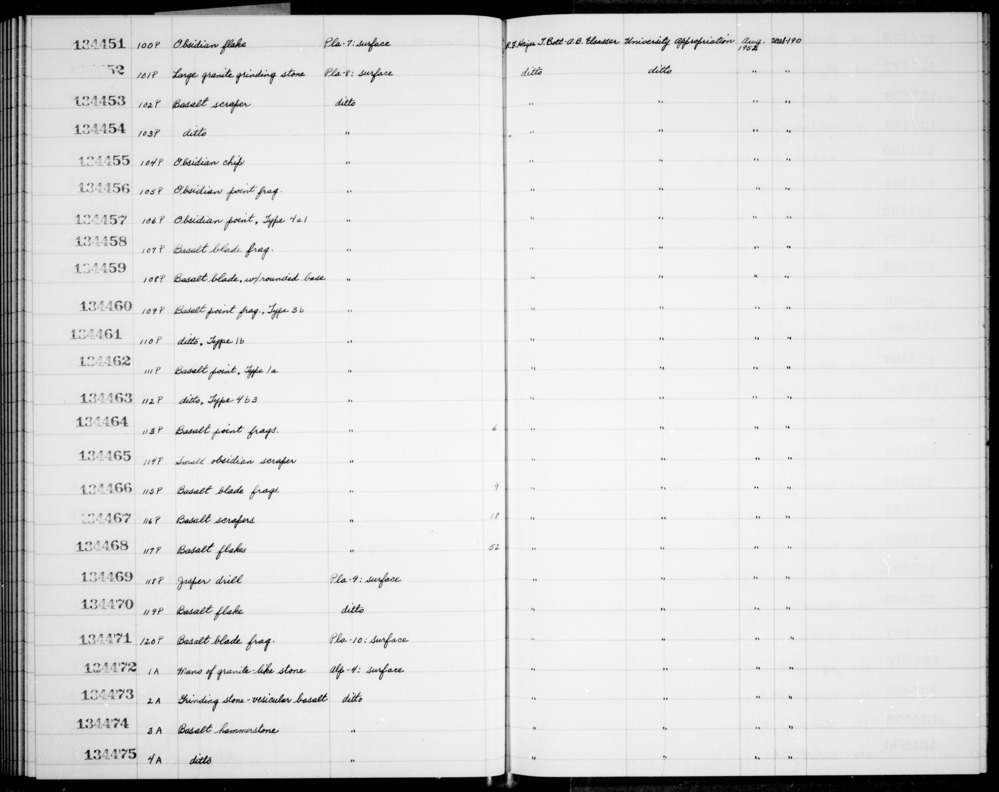 134451 100P Obsidian flake Pla-7: surface R.F. Heizer T. Bolt-A.B. Elsasser University Appropriation Aug. 1952
52 101P Large granite grinding stone Pla-8: surface ditto ditto " "
134453 102P Basalt scraper ditto " " " "
134454 103P ditto " " " " "
134455 104P Obsidian chip " " " " "
134456 105P Obsidian point frag. " " " " "
134457 106P Obsidian point, Type 4a1 " " " " "
134458 107P Basalt blade frag. " " " " "
134459 108P Basalt blade, w/rounded base " " " " "
134460 109P Basalt point frag., Type 3b " " " " "
134461 110P ditto, Type 1b " " " " "
134462 111P Basalt point, Type 1a " " " " "
134463 112P ditto, Type 4b3 " " " " "
134464 113P Basalt point frags. " 6 " " " "
134465 114P Small obsidian scraper " " " " "
134466 115P Basalt blade frags. " 9 " " " "
134467 116P Basalt scrapers " 18 " " " "
134468 117P Basalt flakes " 52 " " " "
134469 118P Jasper drill Pla-9: surface " " " "
134470 119P Basalt flake ditto " " " "
134471 120P Basalt blade frag. Pla-10: surface " " " "
134472 1A Mano of granite-like stone Alp-4: surface " " " "
134473 2A Grinding stone-vesicular basalt ditto " " " "
134474 3A Basalt hammerstone " " " " "
134475 4A ditto " " " " "